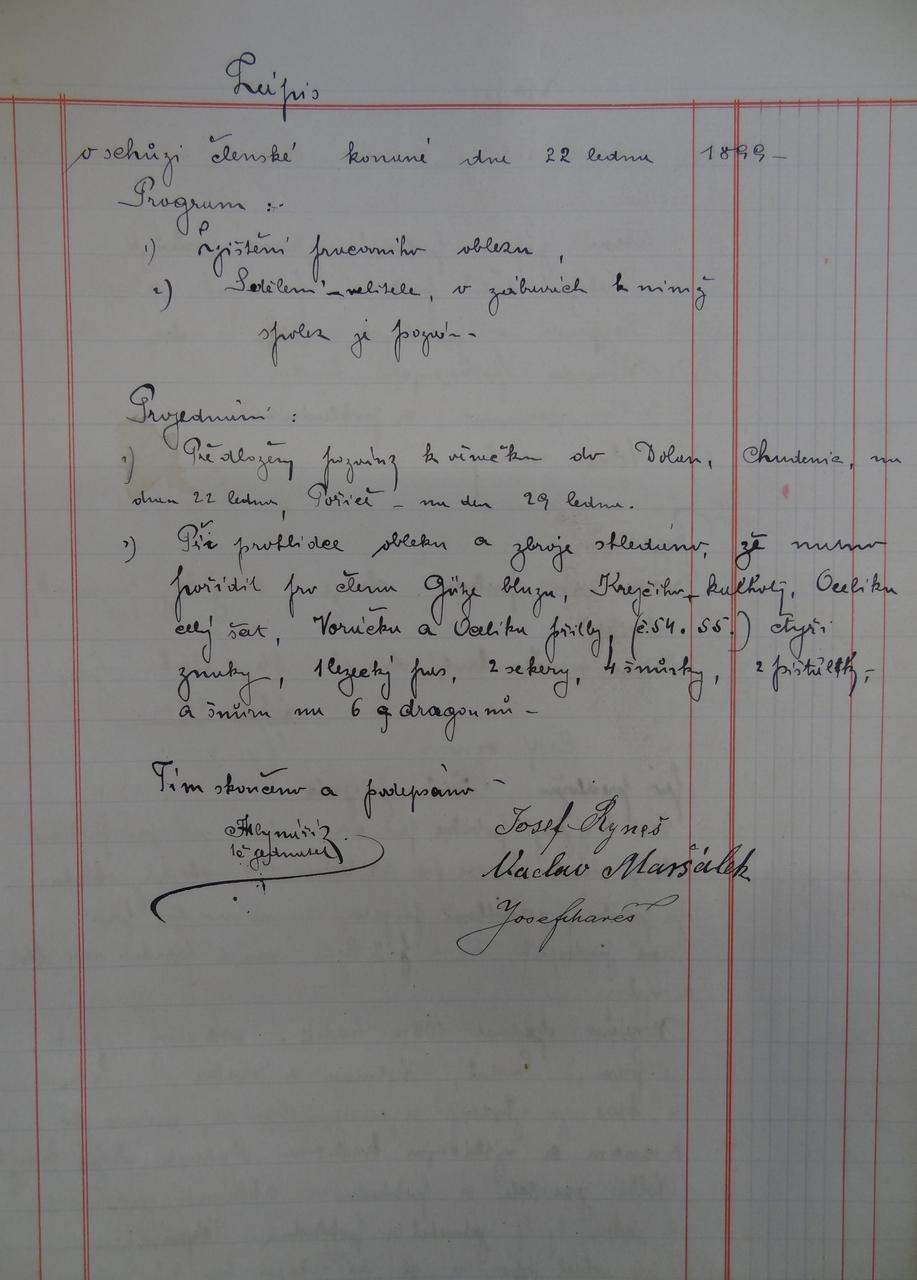 Zápis
o schůzi členské konané dne 22 ledna 1899 –
Program :-
1) Zjištění pracovního obleku ,
2) Sdělení velitele, o zábavách k nimž
spolek je pozván –
Projednání :
1) Předloženy pozvání k věnečku do Dolan, Chudenic, na
dnen 22 ledna, Poříčí – na den 29 ledna.
2) Při prohlídce obleku a zbroje shledáno, že nutno
pořídit pro člena Götze bluzu, Krejčího – kalhoty, Ocelíku
celý šat, Voráčku a Ocelíku přilby, (č. 54. 55.) čtyři
znaky , 1 lezecký pas, 2 sekery, 4 šňůrky , 2 píšťalky,–
a šňůru na 6 dragounů –
Tím skončeno a podepsáno –
Mlynařík
t č jednatel
Josef Ryneš
Václav Maršálek
Josef